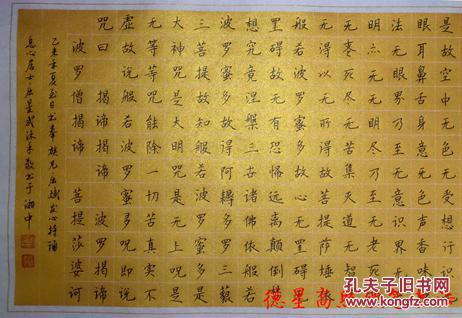 是故空中无色无受想行识
眼耳鼻舌身意无色声香味
法无眼界乃至无意识界无
明亦无无明尽乃至无老死
无老死尽无苦集灭道无
以无所得故菩提萨埵
若波罗蜜多故心无罣
罣碍故无有恐怖远离颠倒
想究竟涅槃三世诸佛依般若
波罗蜜多故得阿耨多罗三藐
三菩提故知般若波罗蜜多是
大神咒是大明咒是无上咒是
无等等咒能除一切苦真实不
虚故说般若波罗蜜多咒即说
咒曰 揭谛揭谛 波罗揭谛
波罗僧揭谛 菩提萨婆诃
乙未年夏至日 奉族兄 心持诵
息心居士 敬书于湘中
德星高照